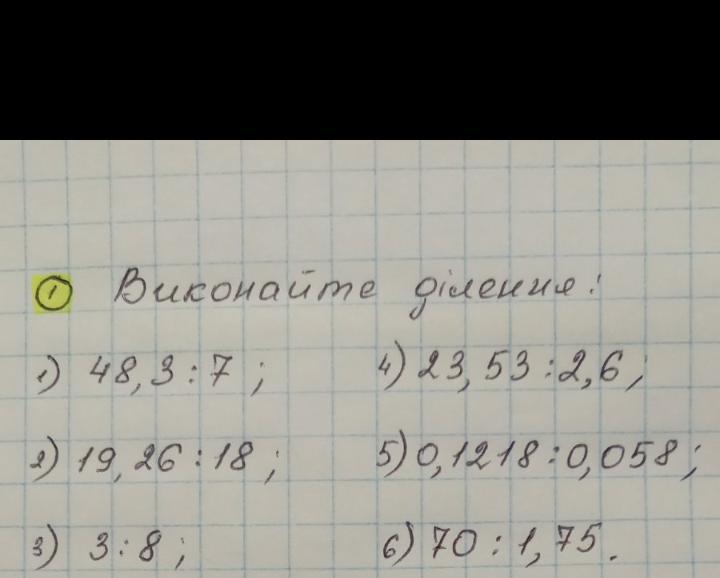 ① Виконайте ділення:
1) 48,3 : 7 ; 4) 23,53 : 2,6 ;
2) 19,26 : 18 ; 5) 0,1218 : 0,058 ;
3) 3 : 8 ; 6) 70 : 1,75 .